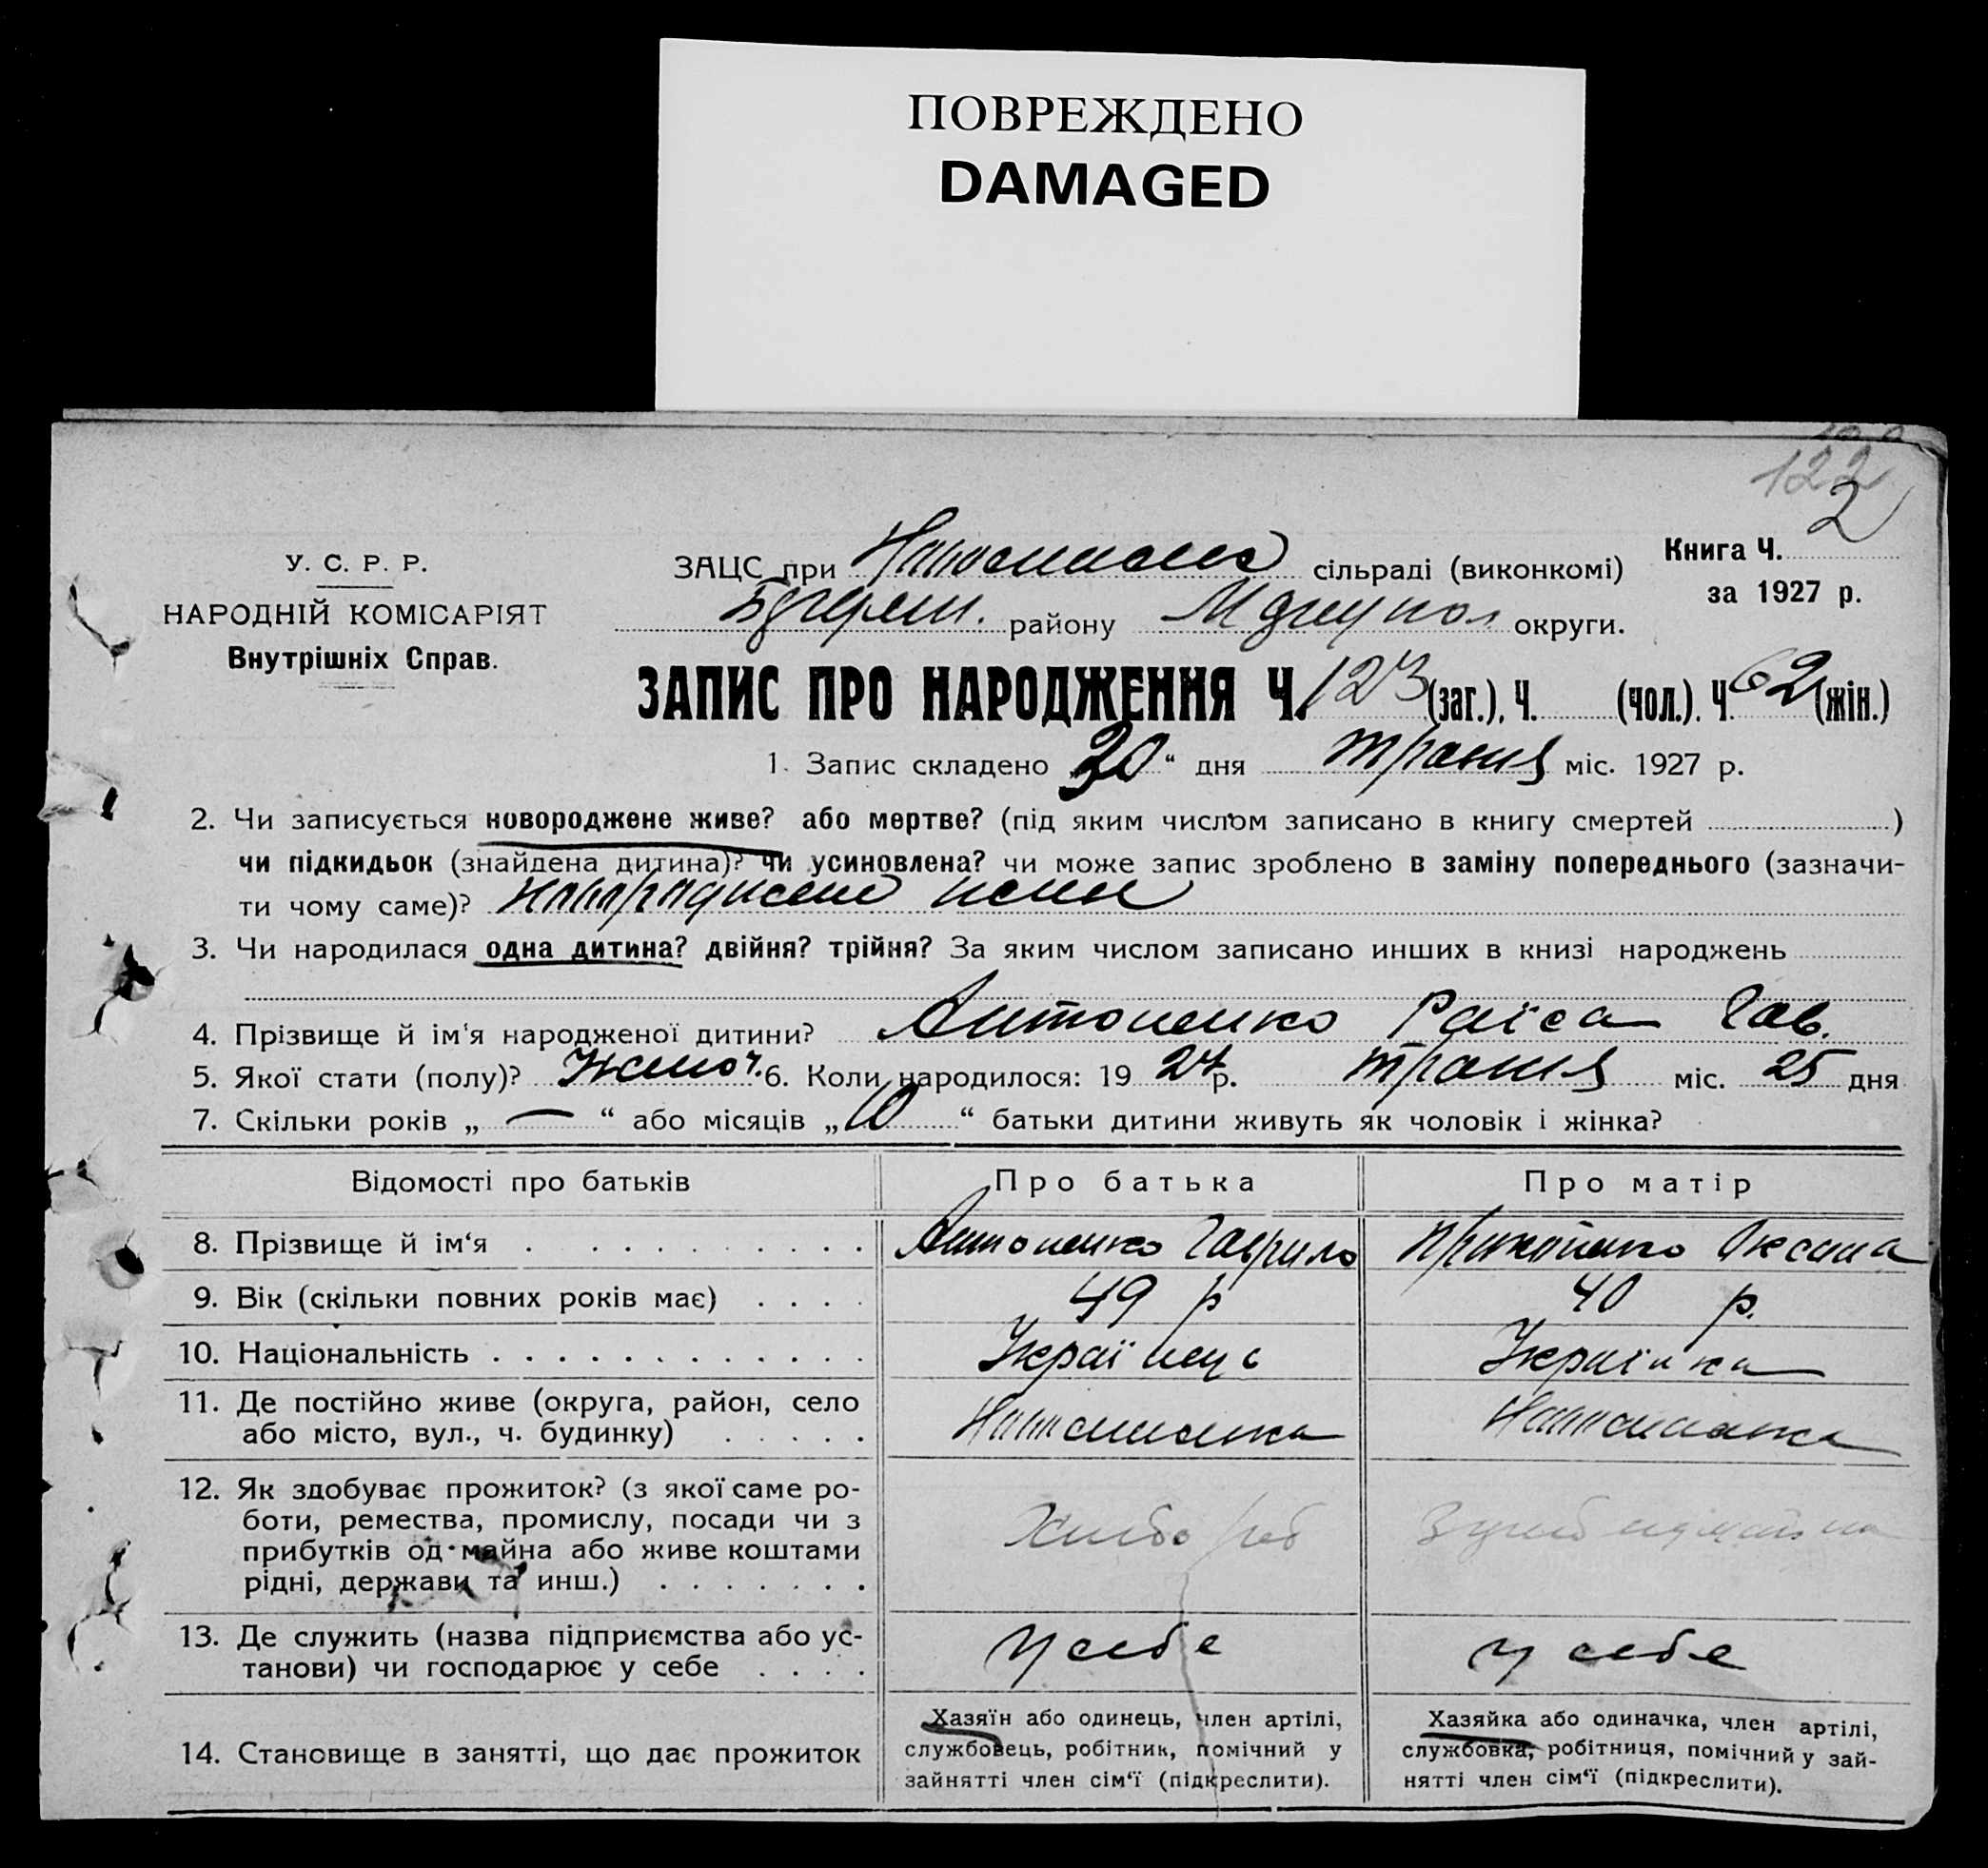 ПОВРЕЖДЕНО
DAMAGED
122
2
У. С. Р. Р.
НАРОДНІЙ КОМІСАРІЯТ
Внутрішніх Справ.
ЗАЦС при сільраді (виконкомі)
району округи.
Книга Ч.
за 1927 р.
ЗАПИС ПРО НАРОДЖЕННЯ Ч. 123 (заг.), Ч. (чол.). Ч. 62 (жін.)
1. Запис складено 30 “ дня травня міс. 1927 р.
2. Чи записується новороджене живе? або мертве? (під яким числом записано в книгу смертей )
чи підкидьок (знайдена дитина)? чи усиновлена? чи може запис зроблено в заміну попереднього (зазначи-
ти чому саме)?
3. Чи народилася одна дитина? двійня? трійня? За яким числом записано инших в книзі народжень
4. Прізвище й ім'я народженої дитини? Антоненко Раїса Гав.
5. Якої стати (полу)? Жіноч. 6. Коли народилося: 19 27 р. травня міс. 25 дня
7. Скільки років „ — “ або місяців „ 10 “ батьки дитини живуть як чоловік і жінка?
Відомості про батьків Про батька Про матір
8. Прізвище й ім'я Антоненко Гаврило Оксана
9. Вік (скільки повних років має) 49 р 40 р.
10. Національність Українець Українка
11. Де постійно живе (округа, район, село
або місто, вул., ч. будинку)
12. Як здобуває прожиток? (з якої саме ро-
боти, ремества, промислу, посади чи з
прибутків од майна або живе коштами
рідні, держави та инш.)
Хлібороб
13. Де служить (назва підприємства або ус-
танови) чи господарює у себе
у себе у себе
14. Становище в занятті, що дає прожиток
Хазяїн або одинець, член артілі,
службовець, робітник, помічний у
зайнятті член сім'ї (підкреслити).
Хазяйка або одиначка, член артілі,
службовка, робітниця, помічний у зай-
нятті член сім'ї (підкреслити).